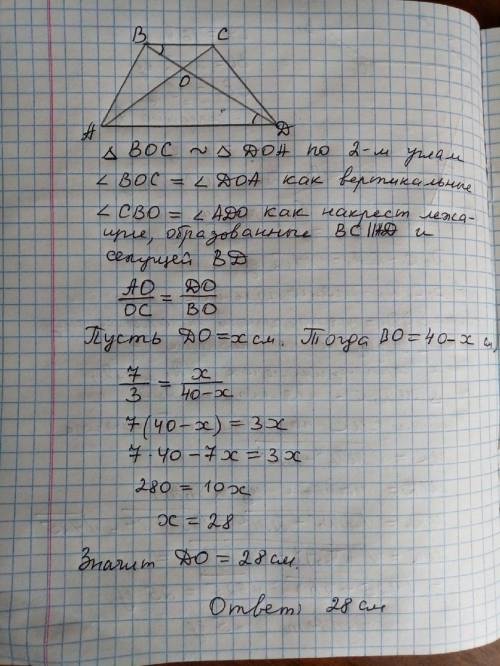 B C
O
A D
△ BOC ~ △ DOA по 2-м углам
∠ BOC = ∠ DOA как вертикальные
∠ CBO = ∠ ADO как накрест лежа-
щие, образованные BC||AD и
секущей BD
AO/OC = DO/BO
Пусть DO = x см. Тогда BO = 40-x см,
7/3 = x/40-x
7(40-x) = 3x
7·40-7x = 3x
280 = 10x
x = 28
Значит DO = 28 см.
Ответ: 28 см